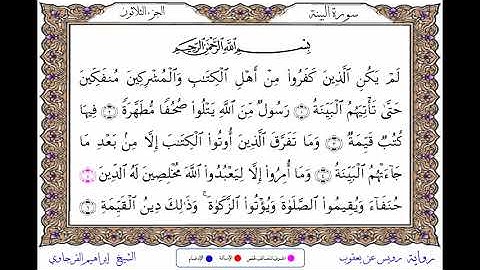 سورة البينة
الجزء الثلاثون
بِسْمِ اللَّهِ الرَّحْمَٰنِ الرَّحِيمِ
لَمْ يَكُنِ الَّذِينَ كَفَرُوا مِنْ أَهْلِ الْكِتَٰبِ وَالْمُشْرِكِينَ مُنفَكِّينَ
حَتَّىٰ تَأْتِيَهُمُ الْبَيِّنَةُ ۝ رَسُولٌ مِّنَ اللَّهِ يَتْلُوا صُحُفًا مُّطَهَّرَةً ۝ فِيهَا
كُتُبٌ قَيِّمَةٌ ۝ وَمَا تَفَرَّقَ الَّذِينَ أُوتُوا الْكِتَٰبَ إِلَّا مِنۢ بَعْدِ مَا
جَاءَتْهُمُ الْبَيِّنَةُ ۝ وَمَا أُمِرُوا إِلَّا لِيَعْبُدُوا اللَّهَ مُخْلِصِينَ لَهُ الدِّينَ ۝
حُنَفَاءَ وَيُقِيمُوا الصَّلَوٰةَ وَيُؤْتُوا الزَّكَوٰةَ ۚ وَذَٰلِكَ دِينُ الْقَيِّمَةِ ۝
رواية رويس عن يعقوب
الإمالة
الإدغام
الشيخ إبراهيم الفرجاوي